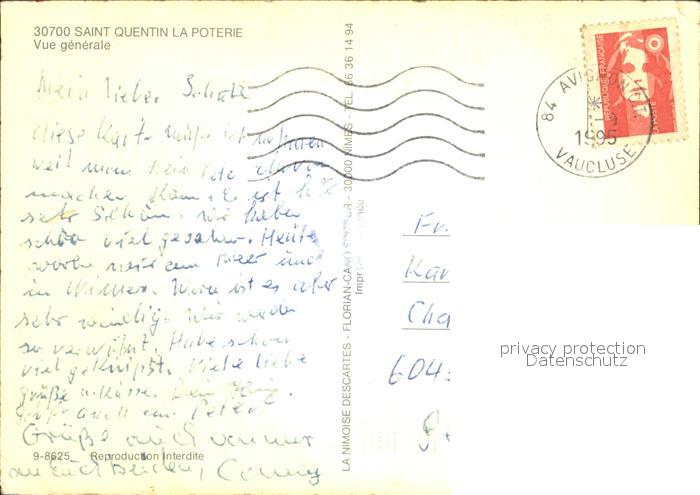 30700 SAINT QUENTIN LA POTERIE
Vue générale
Mein lieber Schatz
diese Karte muße ich nehmen
weil man kein Foto davon
machen kann. Es ist hier
sehr schön. Wir haben
schon viel gesehen. Heute
waren wir am Meer und
in Nimes. Warm ist es aber
sehr windig. Wir werden
so verwöhnt. Habe schon
viel geknipst. Viele liebe
Grüße u. Küsse. Dein
Grüße auch an Peter
Grüße auch von mir
an Euch Beiden, Conny
9-8625 Reproduction Interdite
LA NIMOISE DESCARTES - FLORIAN-CANO - 30000 NIMES - TEL. 66 36 14 94
REPUBLIQUE FRANÇAISE
84 AVIGNON
1995
VAUCLUSE
Fr.
Kar
Cha
6045
privacy protection
Datenschutz